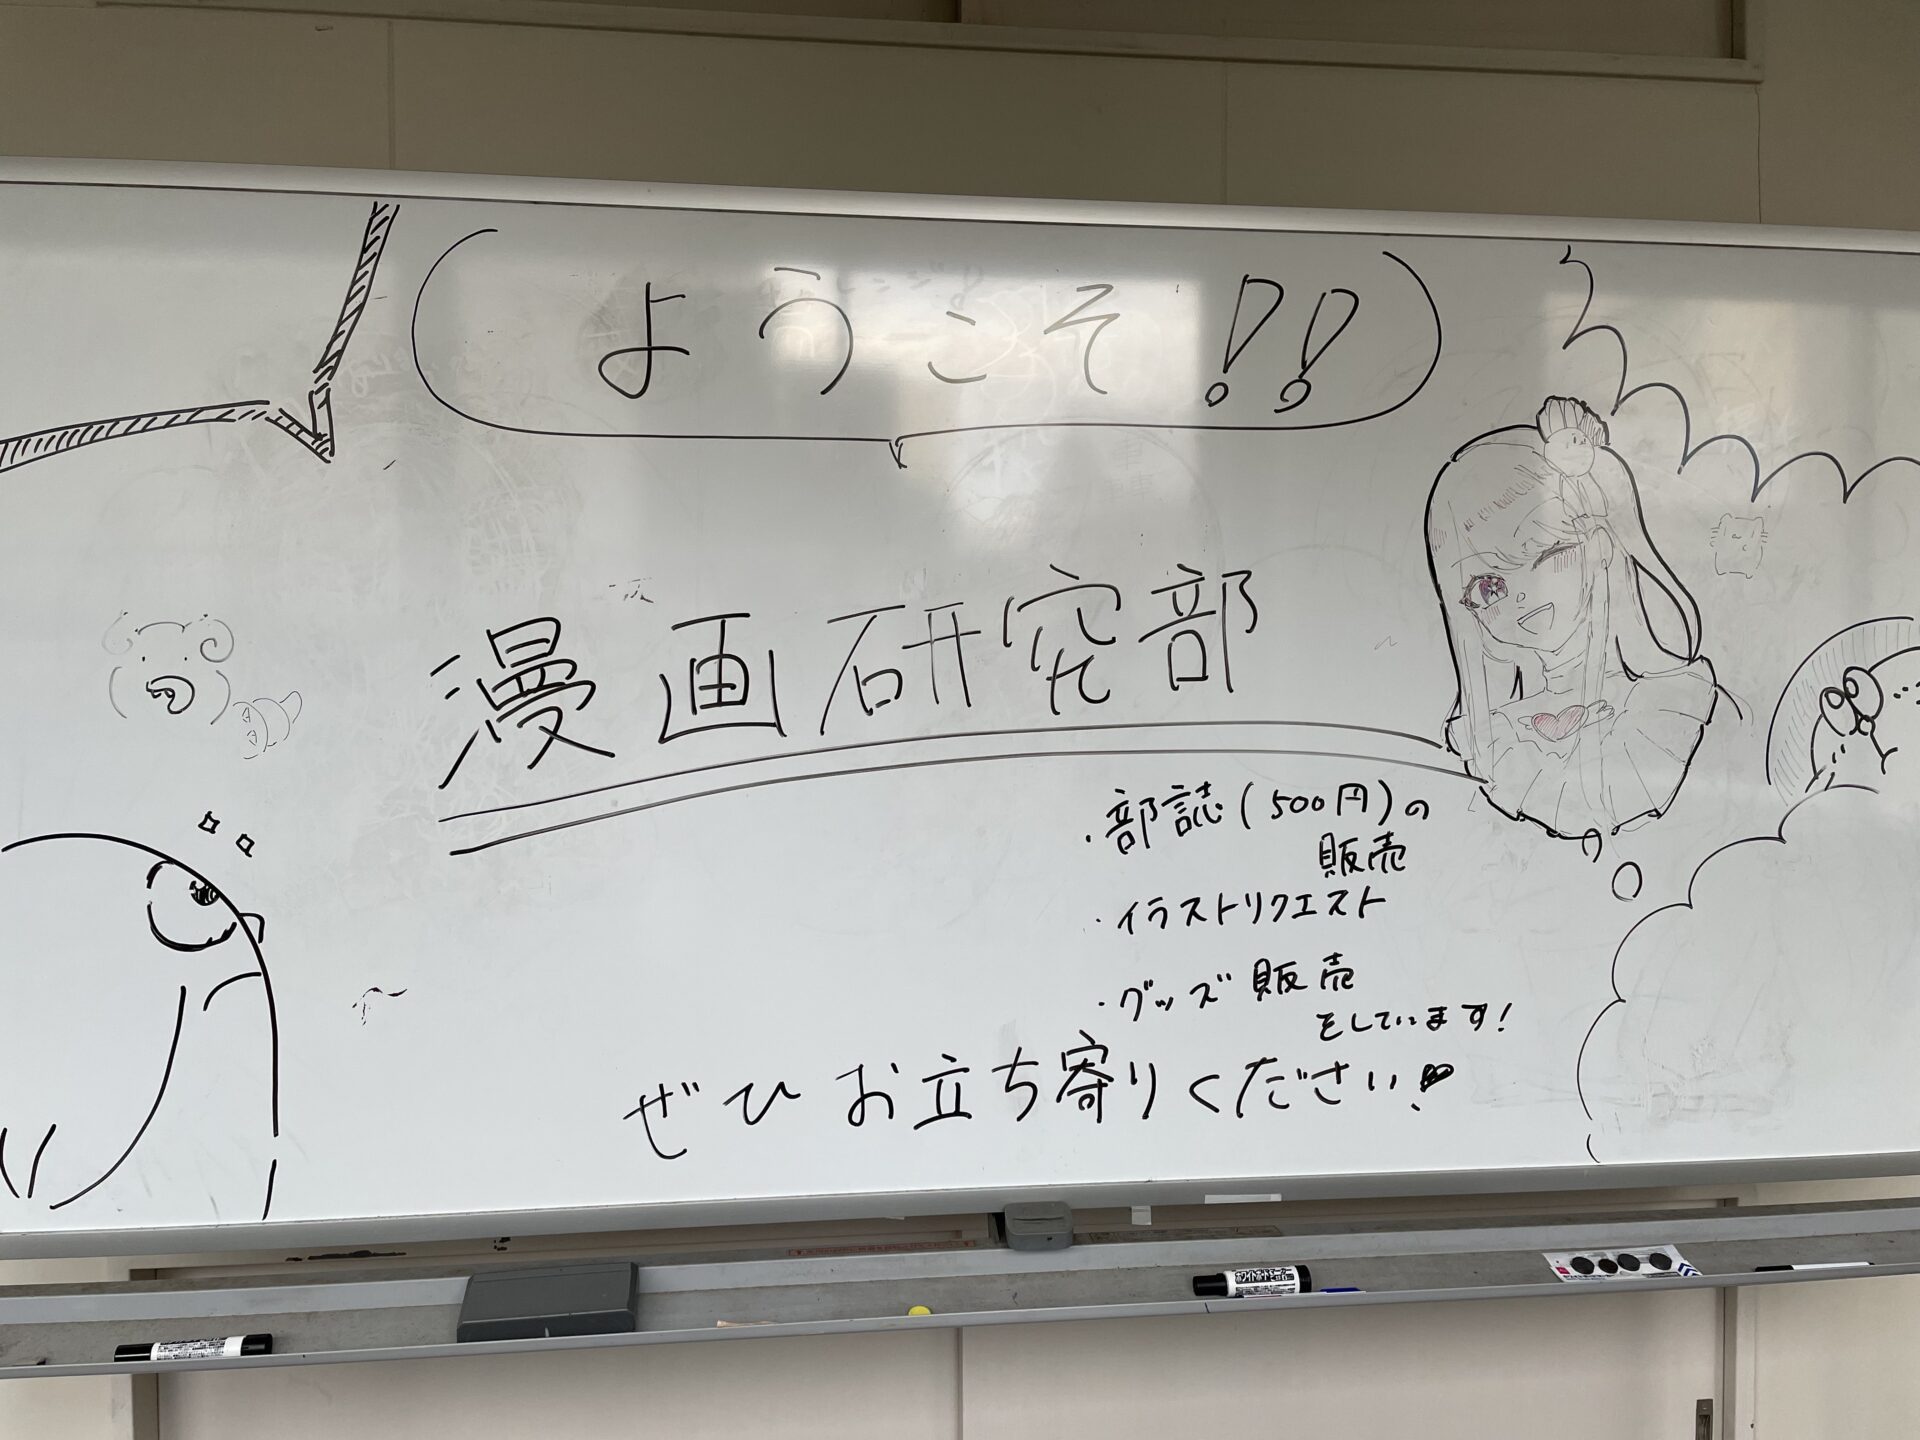 ようこそ!!
漫画研究部
・部誌(500円)の
販売
・イラストリクエスト
・グッズ販売
をしています!
ぜひお立ち寄りください!
ホワイトボードマーカー